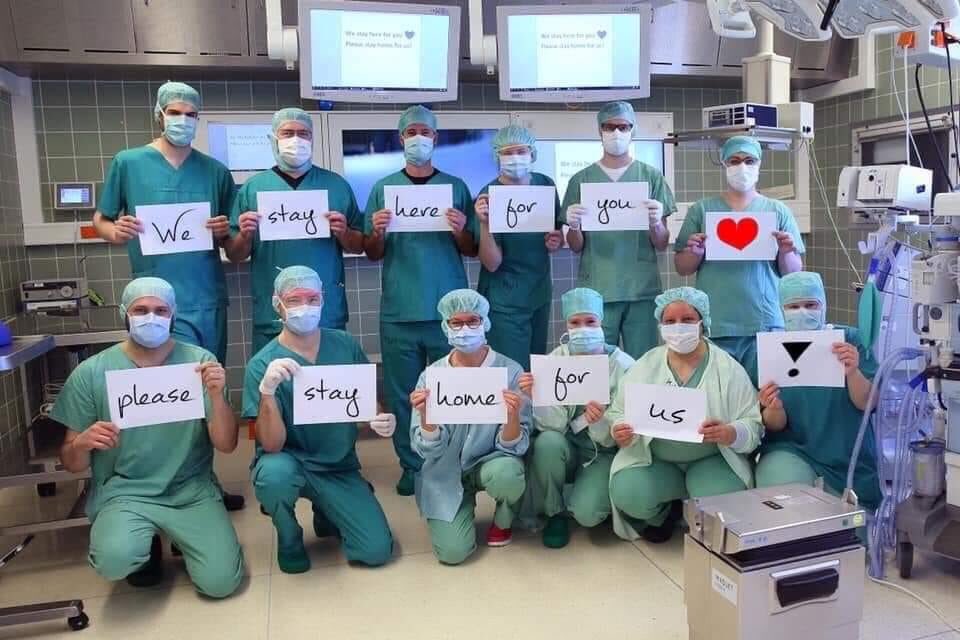 We stay here for you
Please stay home for us!
We stay here for you
Please stay home for us!
We stay here for you ❤
please stay home for us !